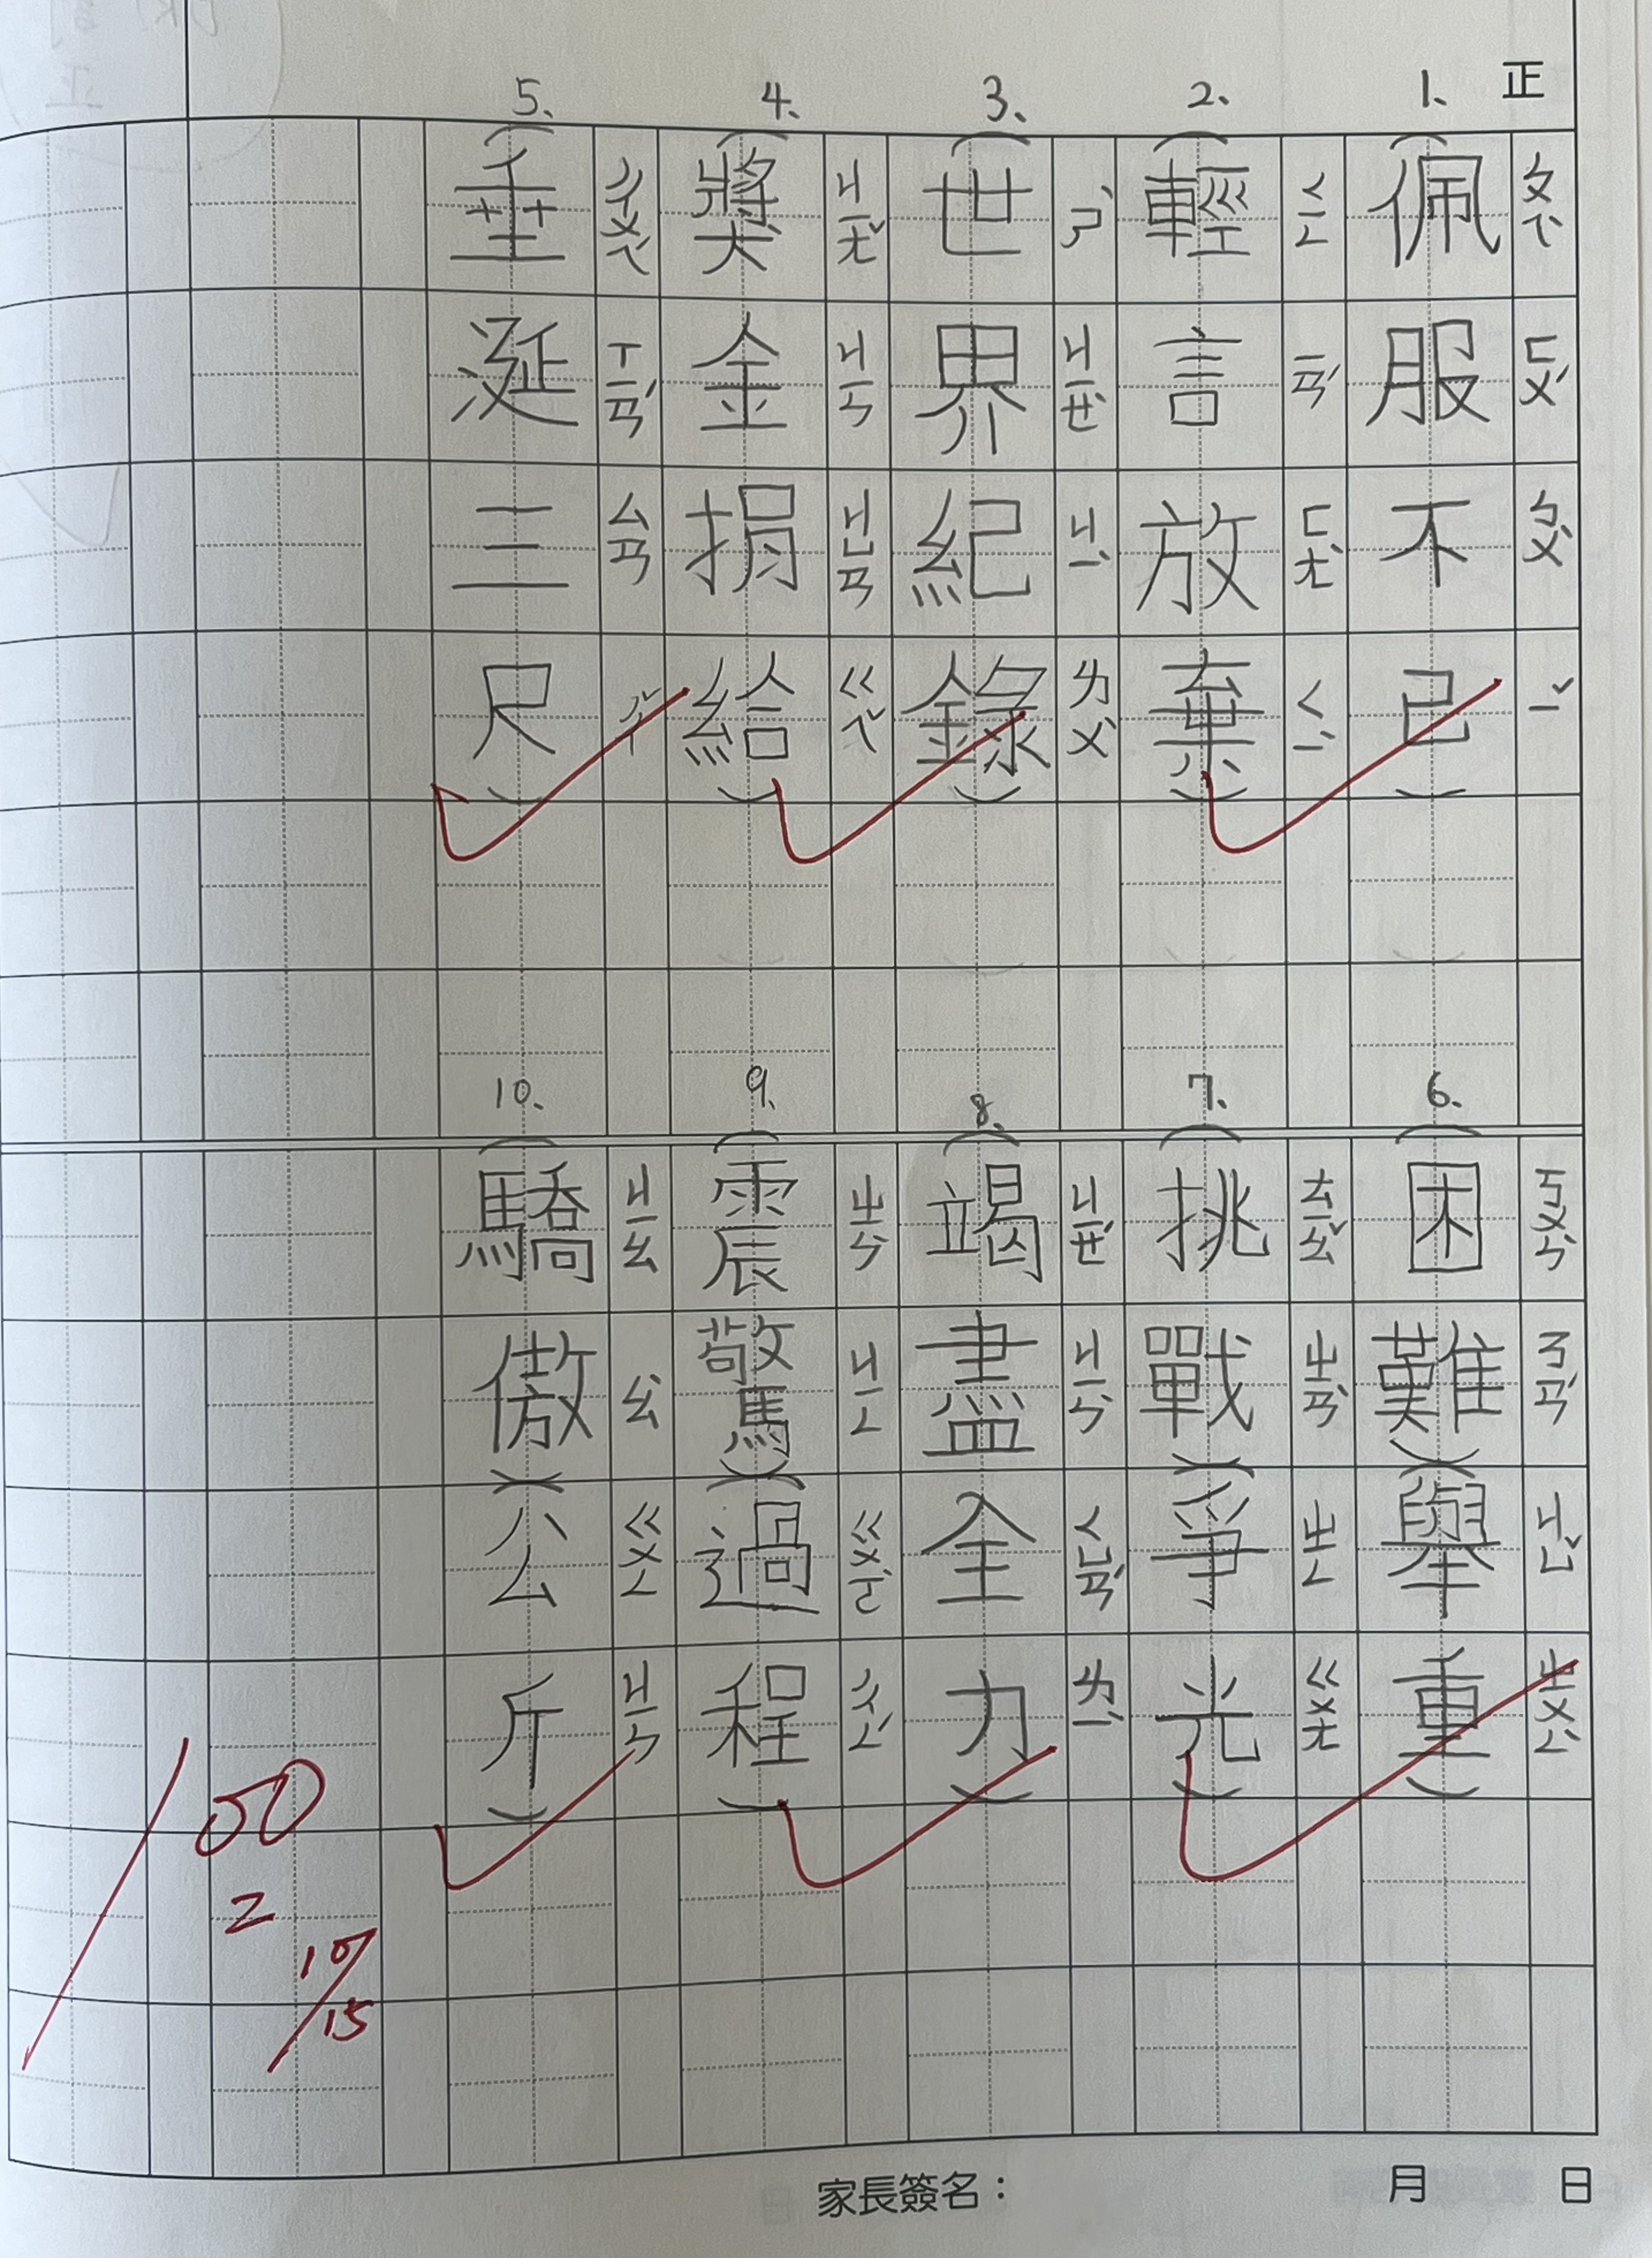 正
1、(佩服不已) ㄆㄟˋ ㄈㄨˊ ㄅㄨˋ ㄧˇ
2、(輕言放棄) ㄑㄧㄥ ㄧㄢˊ ㄈㄤˋ ㄑㄧˋ
3、(世界紀錄) ㄕˋ ㄐㄧㄝˋ ㄐㄧˋ ㄌㄨˋ
4、(獎金捐給) ㄐㄧㄤˇ ㄐㄧㄣ ㄐㄩㄢ ㄍㄟˇ
5、(垂涎三尺) ㄔㄨㄟˊ ㄒㄧㄢˊ ㄙㄢ ㄔˇ
6、(困難)(舉重) ㄎㄨㄣˋ ㄋㄢˊ ㄐㄩˇ ㄓㄨㄥˋ
7、(挑戰)(爭光) ㄊㄧㄠˇ ㄓㄢˋ ㄓㄥ ㄍㄨㄤ
8、(竭盡全力) ㄐㄧㄝˊ ㄐㄧㄣˋ ㄑㄩㄢˊ ㄌㄧˋ
9、(震驚)(過程) ㄓㄣˋ ㄐㄧㄥ ㄍㄨㄛˋ ㄔㄥˊ
10、(驕傲)(公斤) ㄐㄧㄠ ㄠˋ ㄍㄨㄥ ㄐㄧㄣ
100
2
10/15
家長簽名： 月 日